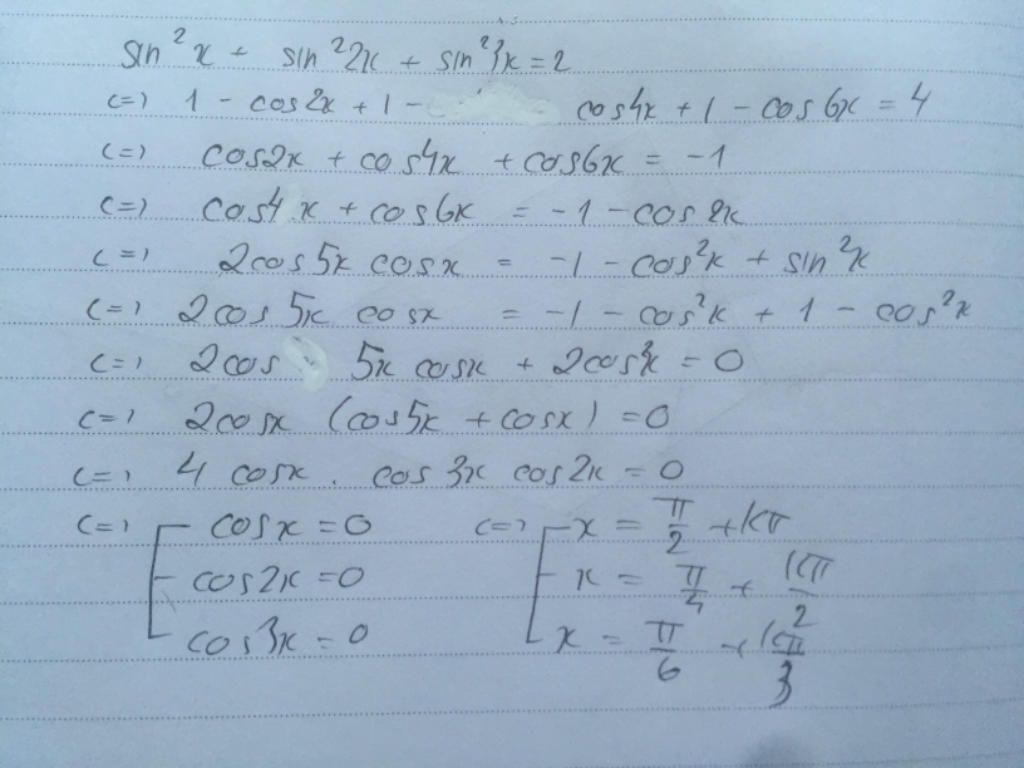 sin²x + sin²2x + sin²3x = 2
<=> 1 - cos2x + 1 - cos4x + 1 - cos6x = 4
<=> cos2x + cos4x + cos6x = -1
<=> cos4x + cos6x = -1 - cos2x
<=> 2cos5x cosx = -1 - cos²x + sin²x
<=> 2cos5x cosx = -1 - cos²x + 1 - cos²x
<=> 2cos 5x cosx + 2cos²x = 0
<=> 2cosx (cos5x + cosx) = 0
<=> 4 cosx . cos3x cos2x = 0
<=> [ cosx = 0 <=> [ x = π/2 + kπ
cos2x = 0 x = π/4 + kπ/2
cos3x = 0 x = π/6 + kπ/3